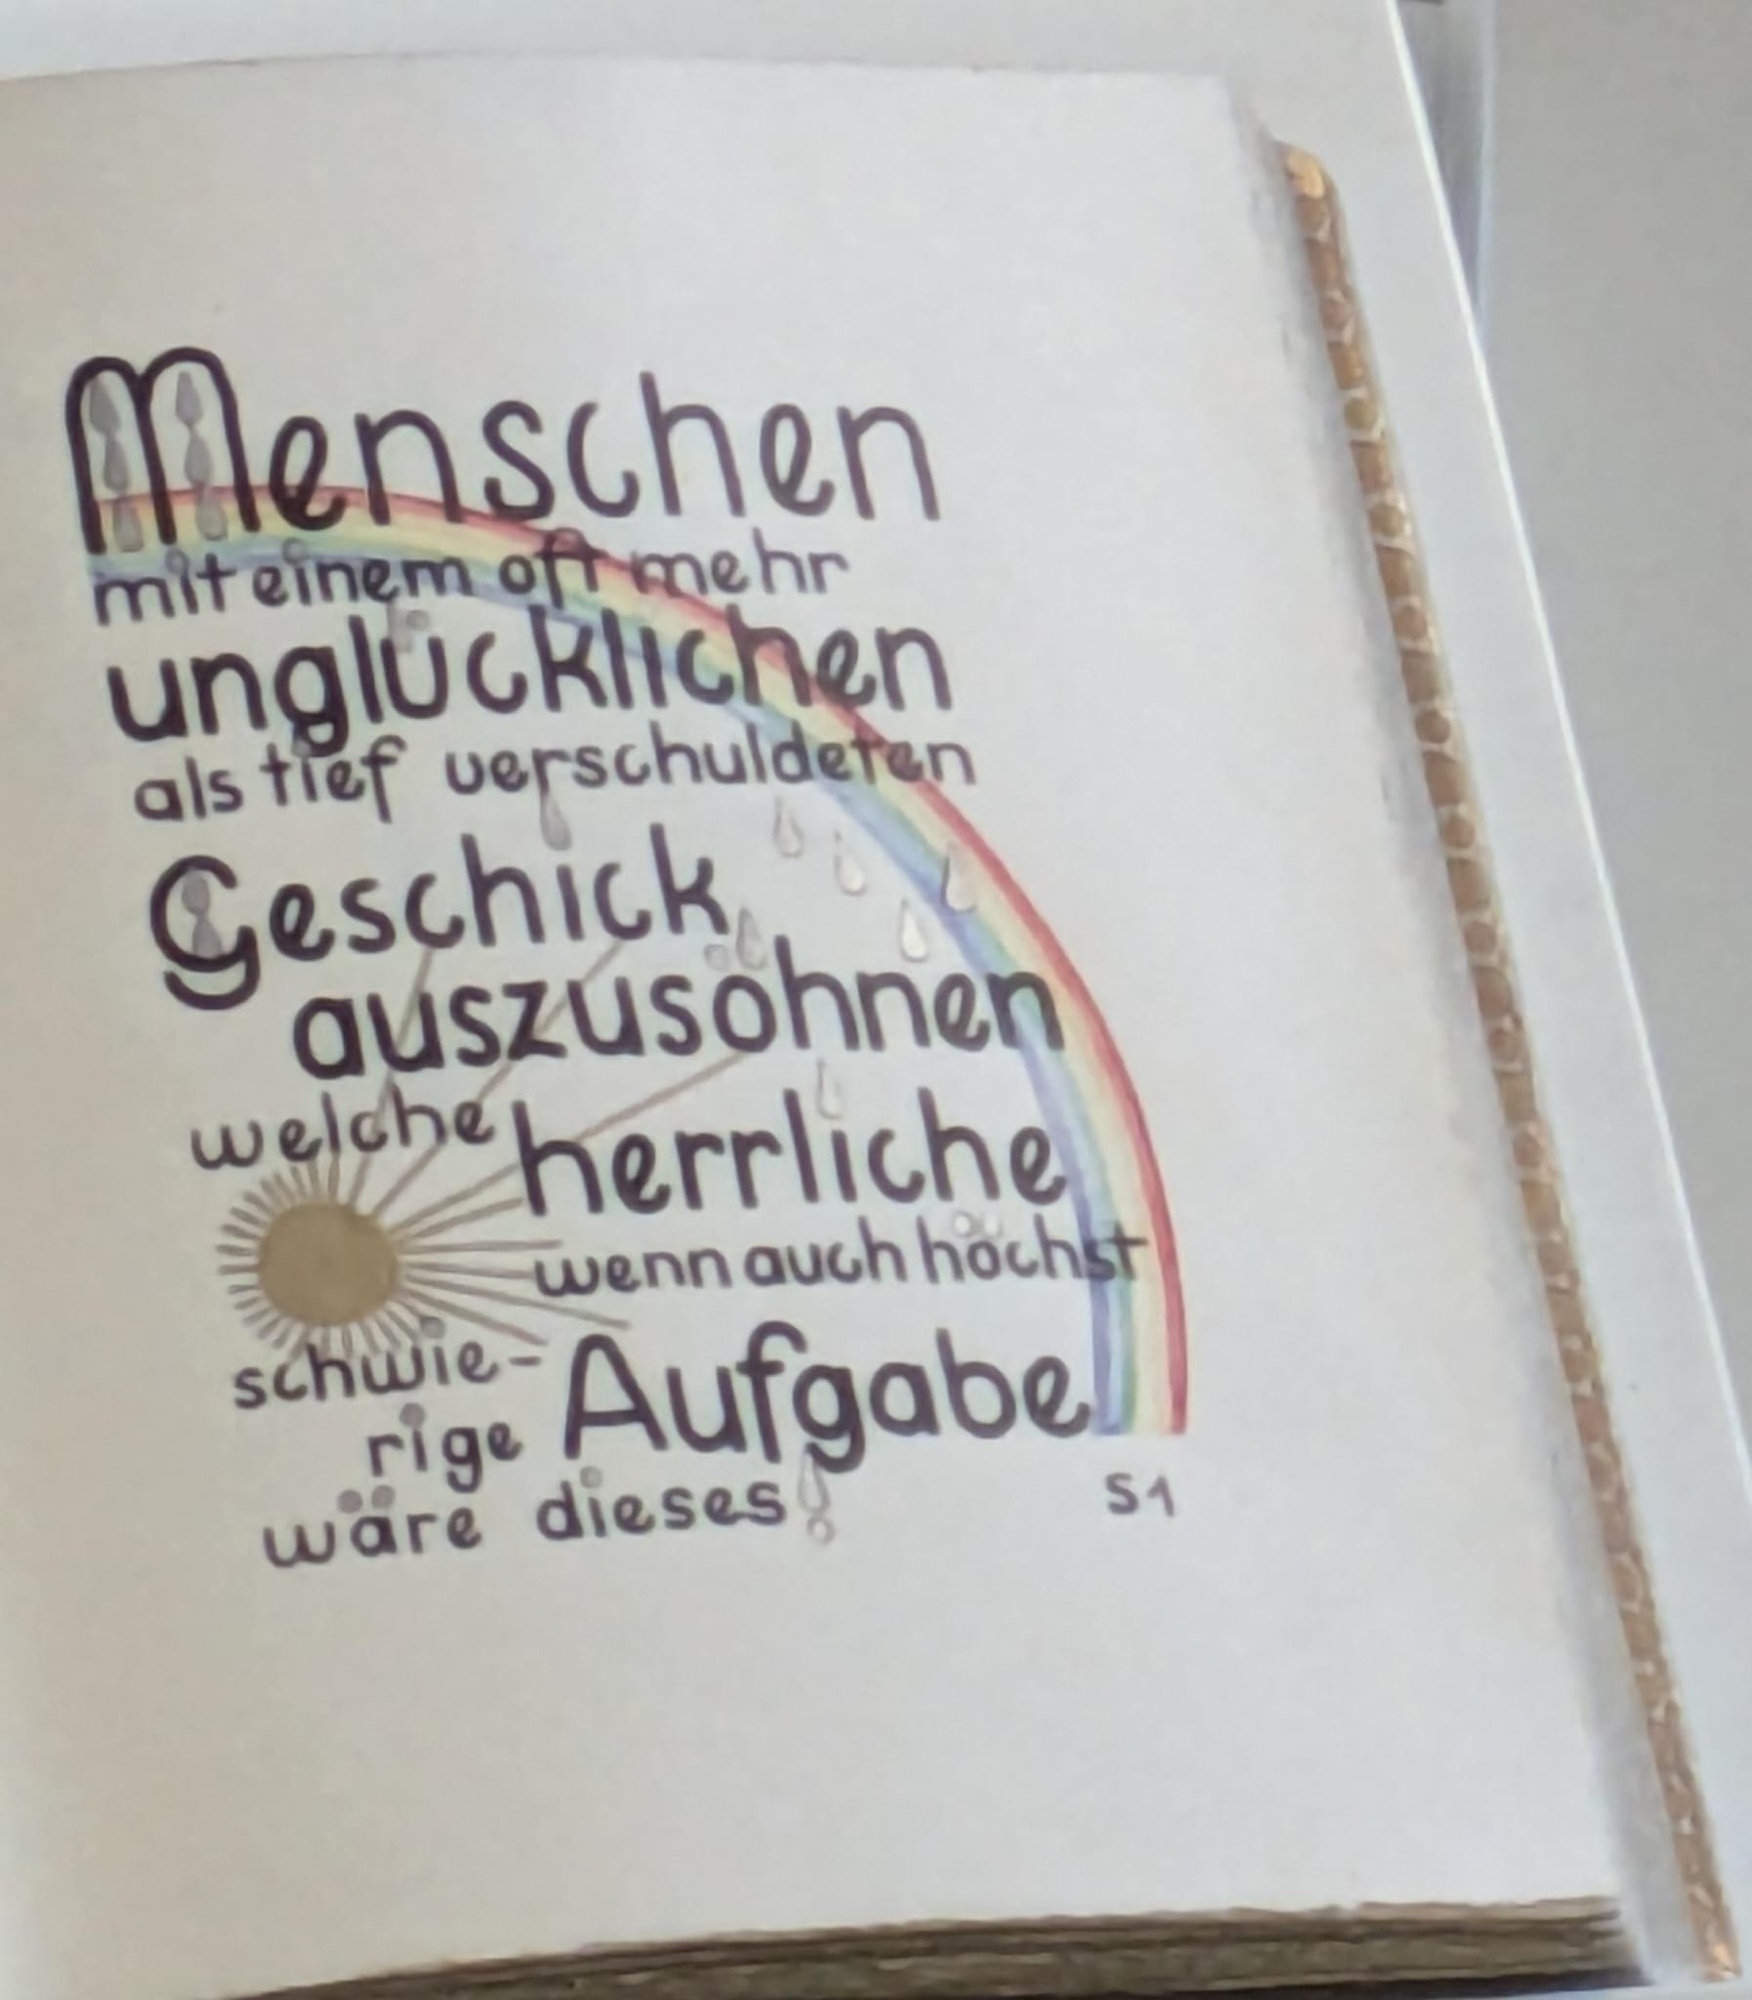 Menschen
mit einem oft mehr
unglücklichen
als tief verschuldeten
Geschick
auszusöhnen
welche herrliche
wenn auch höchst
schwie- Aufgabe
rige
wäre dieses!
S1